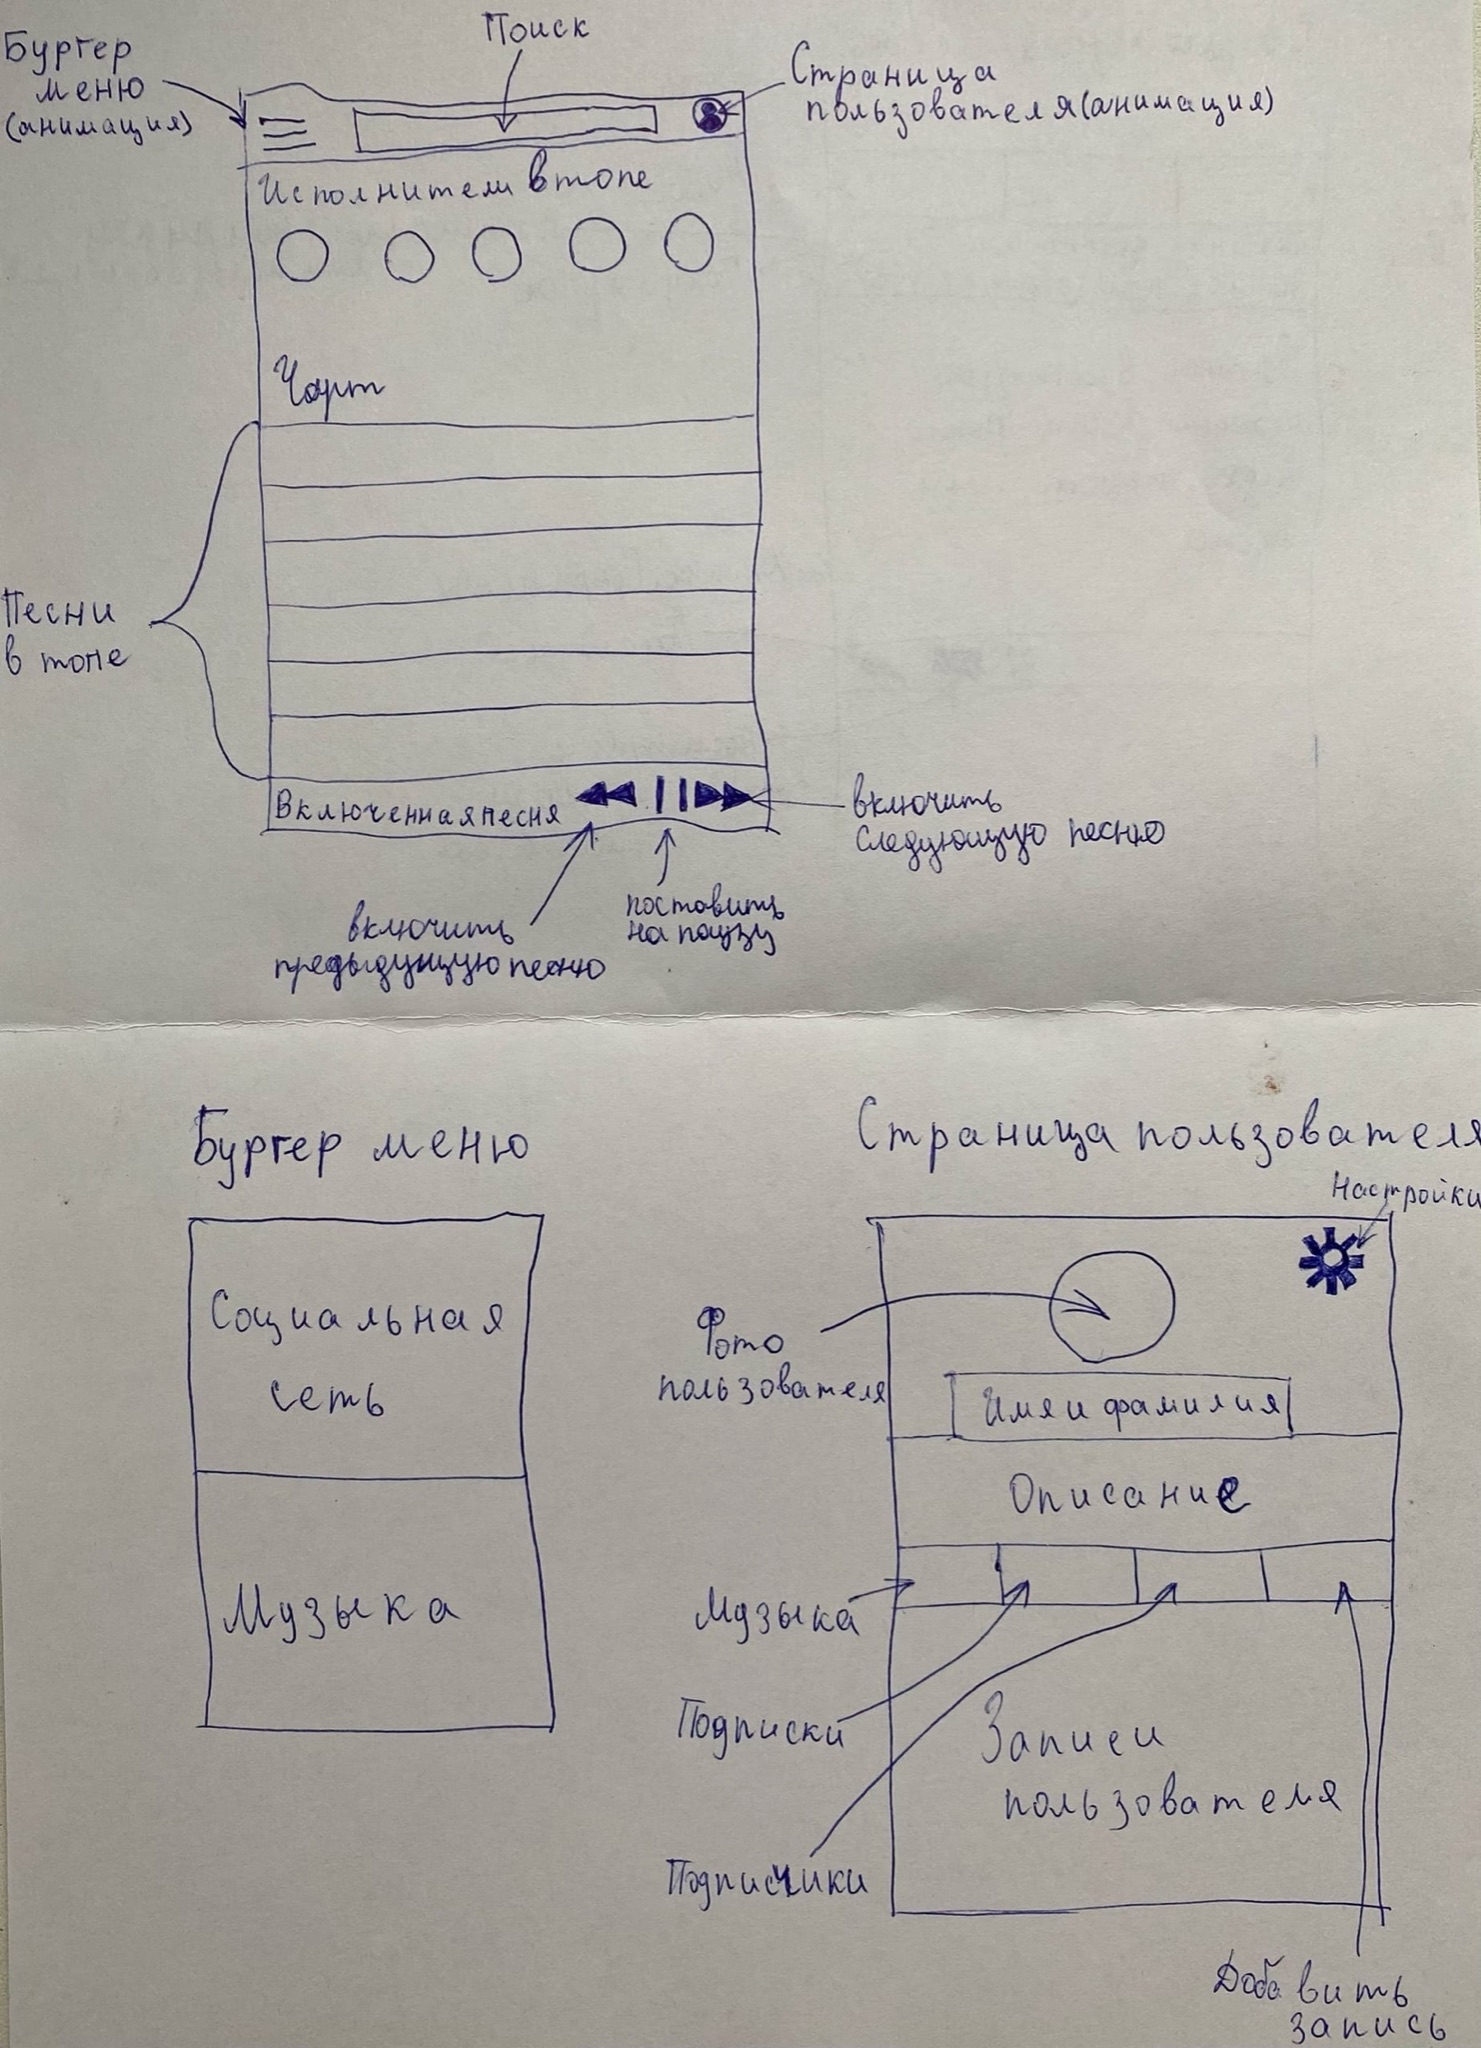 Поиск
Бургер
меню
(анимация)
Страница
пользователя (анимация)
Исполнители в топе
Чарт
Песни
в топе
Включенная песня
включить
следующую песню
включить
предыдущую песню
поставить
на паузу
Бургер меню
Социальная
сеть
Музыка
Страница пользователя
Настройки
Фото
пользователя
Имя и фамилия
Описание
Музыка
Подписки
Подписчики
Записи
пользователя
Добавить
запись